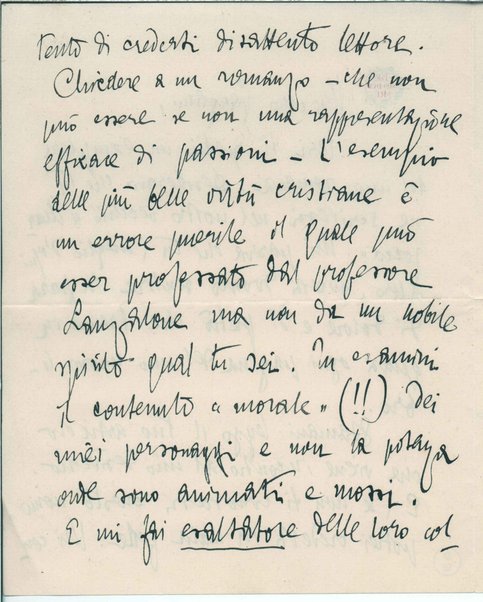 tento di crederti disattento lettore.
Chiedere a un romanzo – che non
può essere se non una rappresentazione
efficace di passioni – l'esempio
delle più belle virtù cristiane è
un errore puerile il quale può
esser professato dal professore
Lanzalone ma non da un nobile
spirito qual tu sei. Tu esamini
il contenuto "morale" (!!) dei
miei personaggi e non la potenza
onde sono animati e mossi.
E mi fai esaltatore delle loro col